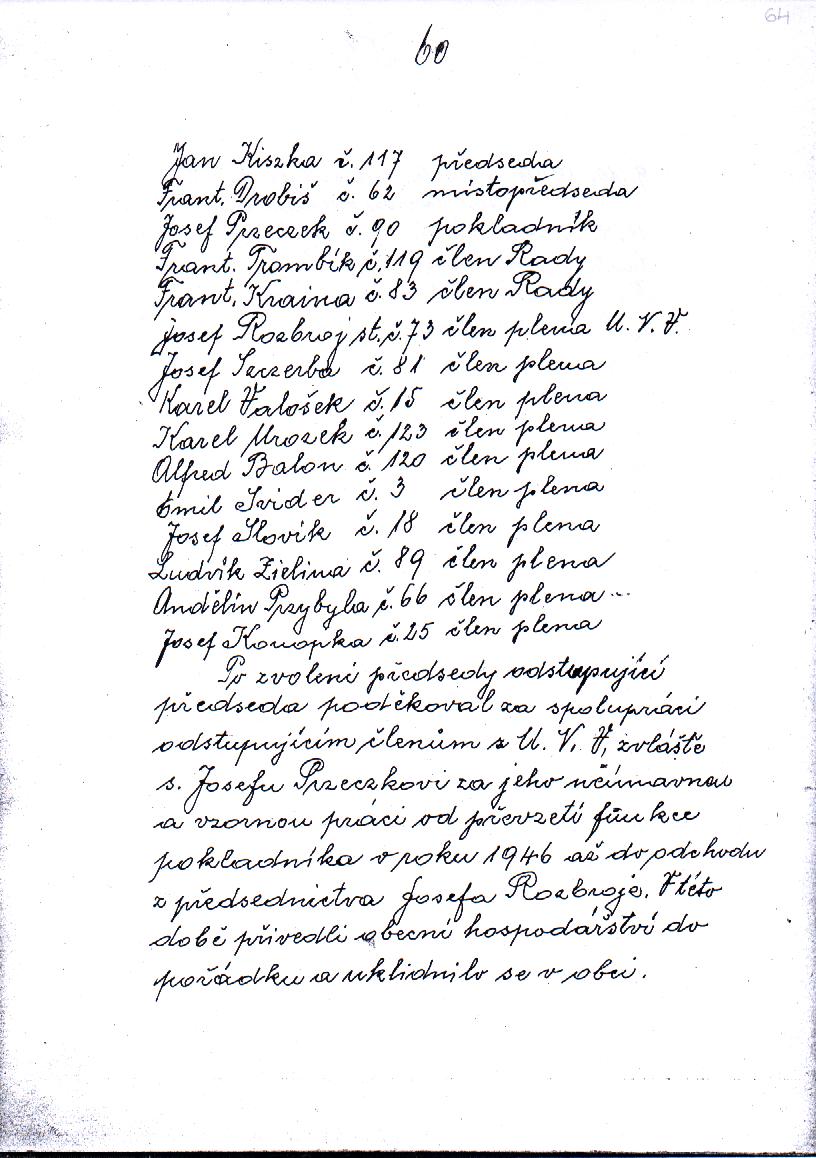 64
60
Jan Kiszka č. 117 předseda
Frant. Drobiš č. 62 místopředseda
Josef Przeczek č. 90 pokladník
Frant. Trombik č. 119 člen Rady
Frant. Kraina č. 83 člen Rady
Josef Rozbroj st. č. 73 člen plena U. N. F.
Josef Szczerba č. 81 člen plena
Karel Falošek č. 15 člen plena
Karel Mrozek č. 123 člen plena
Alfred Balon č. 120 člen plena
Emil Svider č. 3 člen plena
Josef Slovik č. 18 člen plena
Ludvík Zielina č. 89 člen plena
Andělín Przybyla č. 66 člen plena
Josef Konopka č. 25 člen plena
Po zvolení předsedy odstupující
předseda poděkoval za spolupráci
odstupujícím členům z U. N. F, zvláště
s. Josefu Przeczkovi za jeho
a vzornou práci od převzetí funkce
pokladníka v roku 1946 až do odchodu
z předsednictva Josefa Rozbroje. V této
době přivedli obecní hospodářství do
pořádku a uklidnilo se v obci.